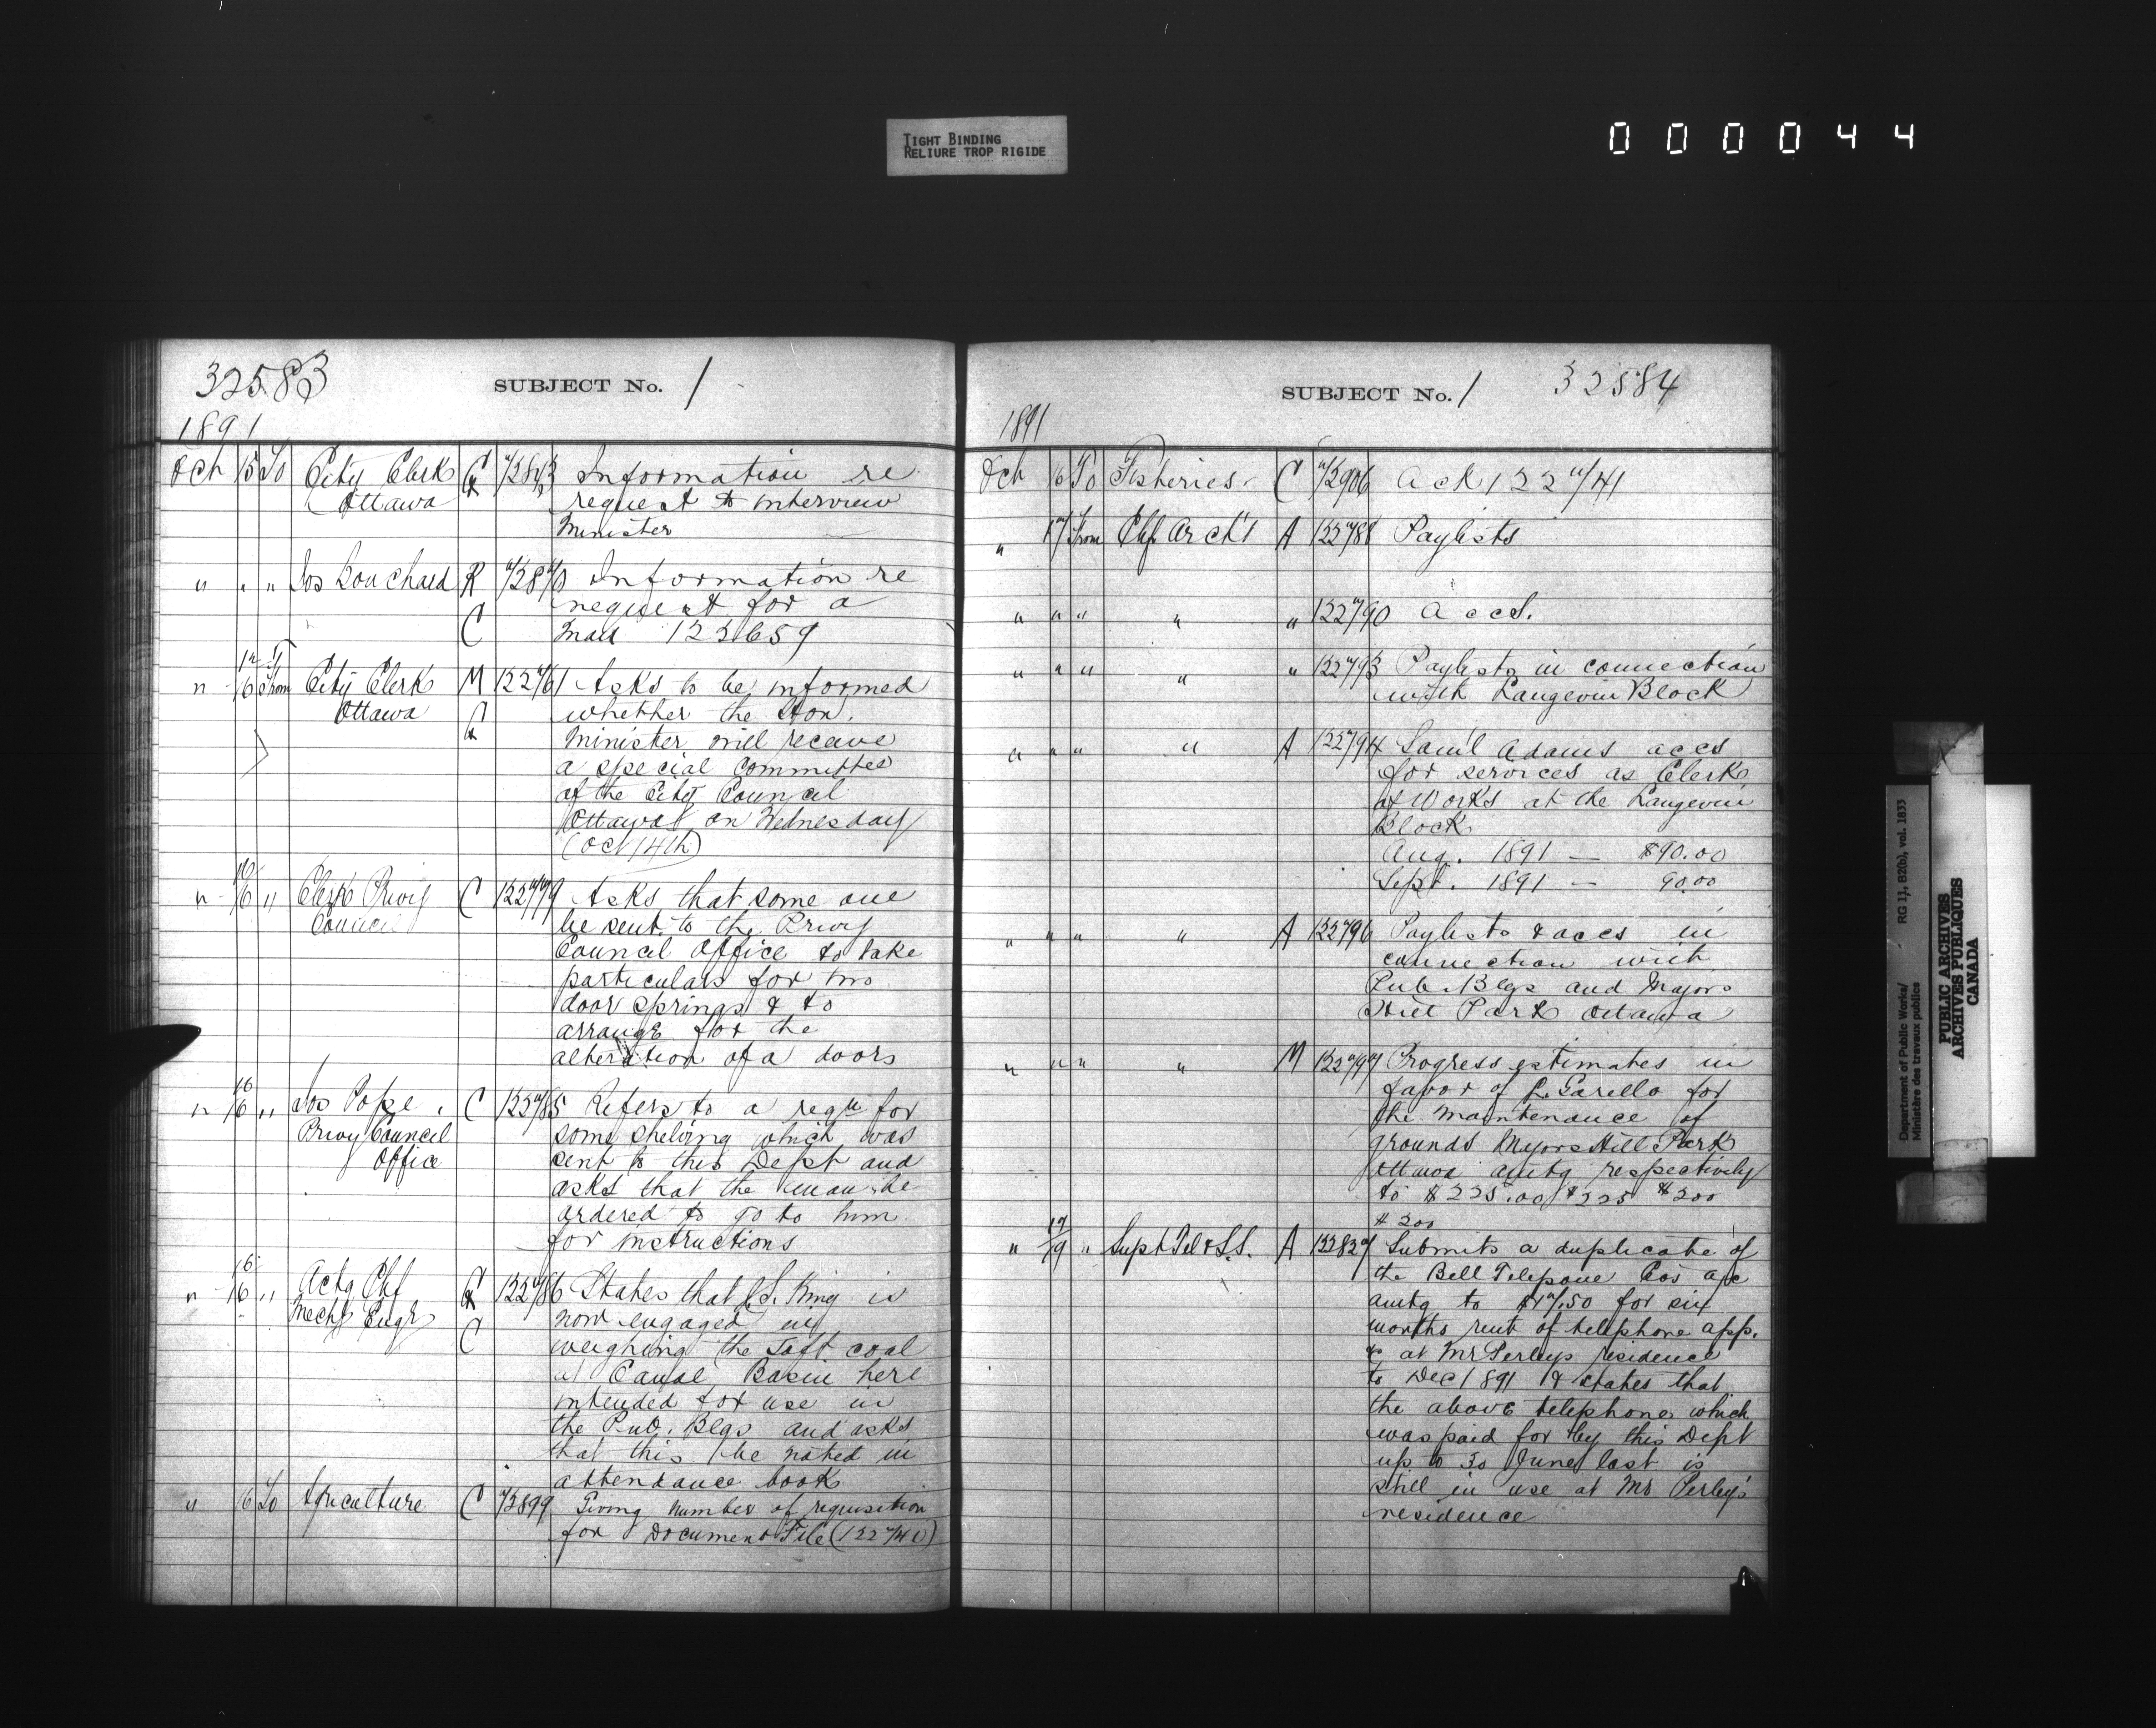 TIGHT BINDING
RELIURE TROP RIGIDE
000044
32583
SUBJECT No. 1
1891
Oct 15 To City Clerk Ottawa C Information re
request to interview
Minister
" " " Jos Bouchard R C Information re
request for a
mad 122659
" 16 From City Clerk Ottawa M 122761 Asks to be informed
whether the Hon.
Minister will receive
a special Committee
of the City Council
Ottawa on Wednesday
(Oct 14th)
" 16 " Clerk Privy Council C 122779 Asks that some one
be sent to the Privy
Council Office to take
particulars for two
door springs & to
arrange for the
alteration of a doors
" 16 " Jos Pope, Privy Council Office C 122785 Refers to a reqn for
some shelving which was
sent to this Dept and
asks that the man be
ordered to go to him
for instructions
" 16 " Actg Chf Mechl Engr C 122786 States that J.S. King is
now engaged in
weighing the soft coal
at Canal Basin here
intended for use in
the Pub. Blgs and asks
that this be noted in
attendance book
" 16 To Agriculture C 72899 Giving number of requisition
for Document File (122740)
SUBJECT No. 1
32584
1891
Oct 16 To Fisheries C 72906 Ack 122741
" 17 From Chf Archt A 122788 Paylists
" " " " " 122790 Accs.
" " " " " 122793 Paylists in connection
with Langevin Block
" " " " A 122794 Saml Adams accs
for services as Clerk
of Works at the Langevin
Block
Aug. 1891 — $90.00
Sept. 1891 — 90.00
" " " " A 122796 Paylists & accs in
connection with
Pub. Blgs and Majors
Hill Park Ottawa
" " " " M 122797 Progress estimates in
favor of for
the maintenance of
grounds Majors Hill Park
Ottawa amtg respectively
to $225.00 $225 $200
$200
" 17/19 " Supt Tel & S.S. A 122827 Submits a duplicate of
the Bell Telepone Cos a/c
amtg to $17.50 for six
months rent of telephone app.
&c at Mr Perleys residence
to Dec 1891 & states that
the above telephone which
was paid for by this Dept
up to 30 June last is
still in use at Mr Perley's
residence
Department of Public Works/
Ministère des travaux publics
RG 11, B2(b), vol. 1833
PUBLIC ARCHIVES
ARCHIVES PUBLIQUES
CANADA